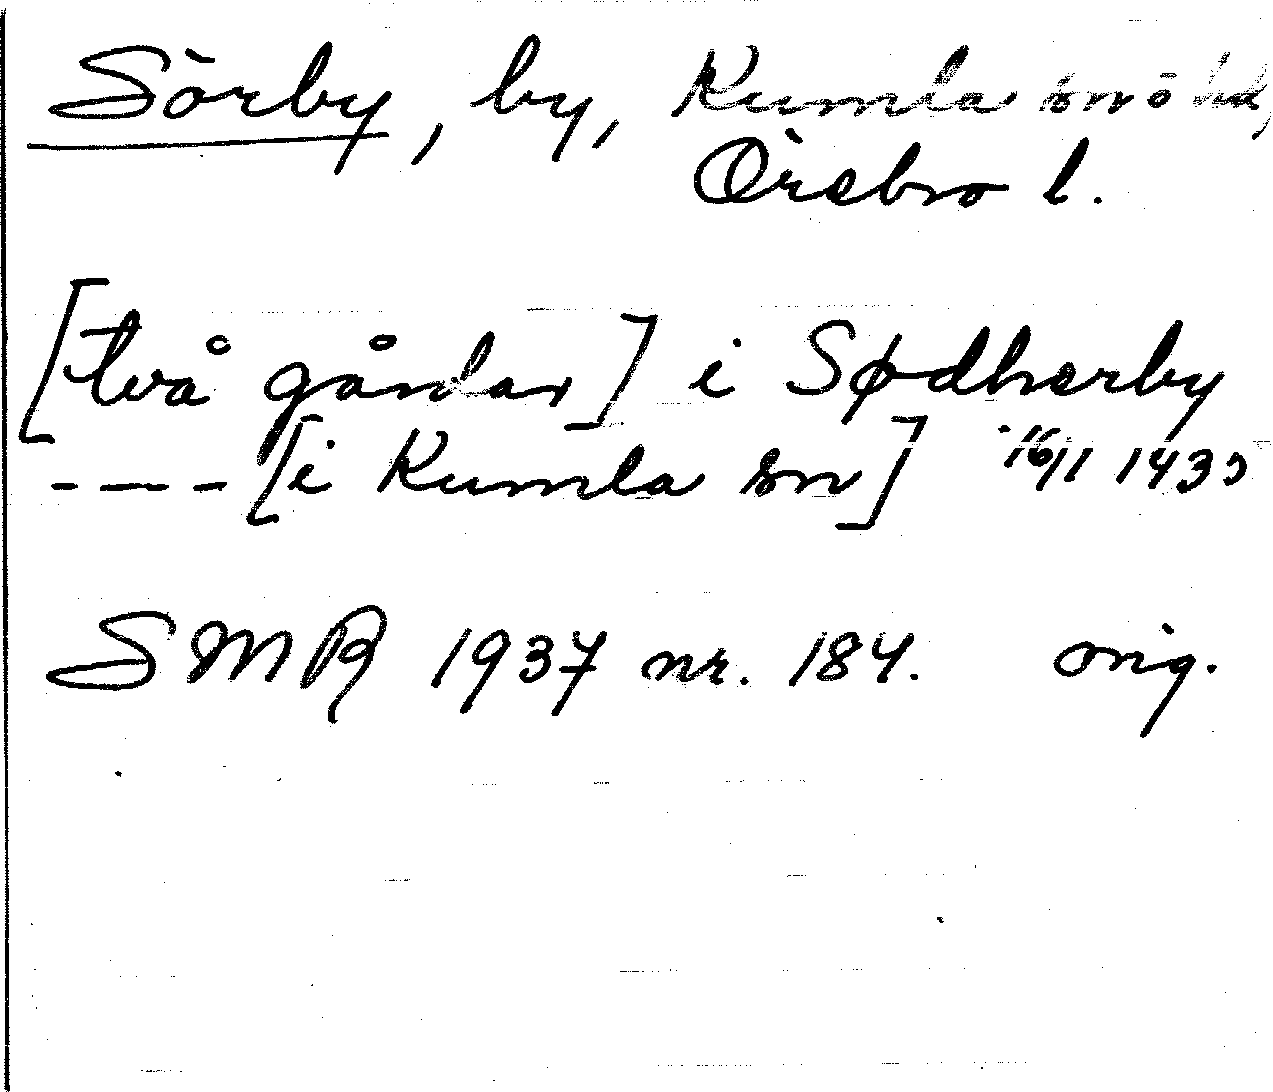 Sörby, by, Kumla sn o hd,
Örebro l.
[två gårdar] i Sødherby
--- [i Kumla sn] 16/1 1435
SMR 1937 nr. 184. orig.